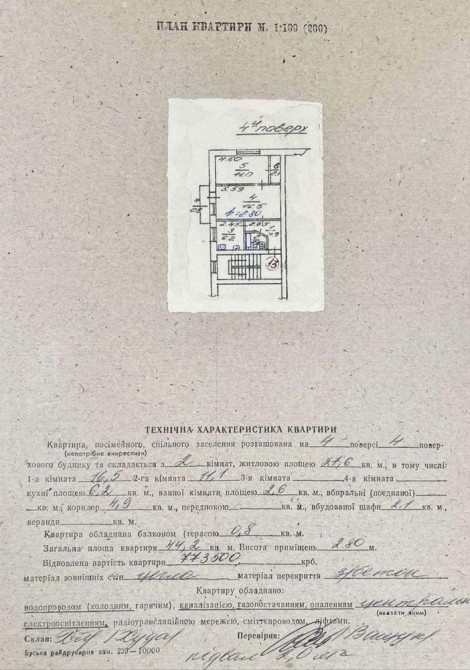 ПЛАН КВАРТИРИ М. 1:100 (200)
4й поверх
4.60
5
11.1
5.59
4
16.5
h=2.80
2.45
2.95
3
6.2
1
4.9
13
ТЕХНІЧНА ХАРАКТЕРИСТИКА КВАРТИРИ
Квартира, посімейного, спільного заселення розташована на 4 поверсі 4 повер-
(непотрібне викреслити)
хового будинку та складається з 2 кімнат, житловою площею 27,6 кв. м, в тому числі:
1-а кімната 16,5 2-га кімната 11,1 3-я кімната 4-а кімната
кухні площею 6,2 кв. м, ванної кімнати, площею 2,6 кв. м, вбиральні (поєднаної)
кв. м, коридор 4,9 кв. м, передпокою кв. м, вбудованої шафи 2.1 кв. м,
веранди кв. м.
Квартира обладнана балконом (терасою) 0,8 кв. м.
Загальна площа квартири 44,2 кв. м. Висота приміщень 2.80 м.
Відновна вартість квартири 773500 крб.
матеріал зовнішніх стін цегла матеріал перекриття з/бетон
Квартиру обладнано:
водопроводом (холодним, гарячим), каналізацією, газопостачанням, опаленням центральне
(вказати яким)
електроосвітленням, радіотрансляційною мережею, сміттєпроводом, ліфтами.
Склав: Перевірив:
Буська райдрукарня зам. 239—10000
підвал 2,0 м2